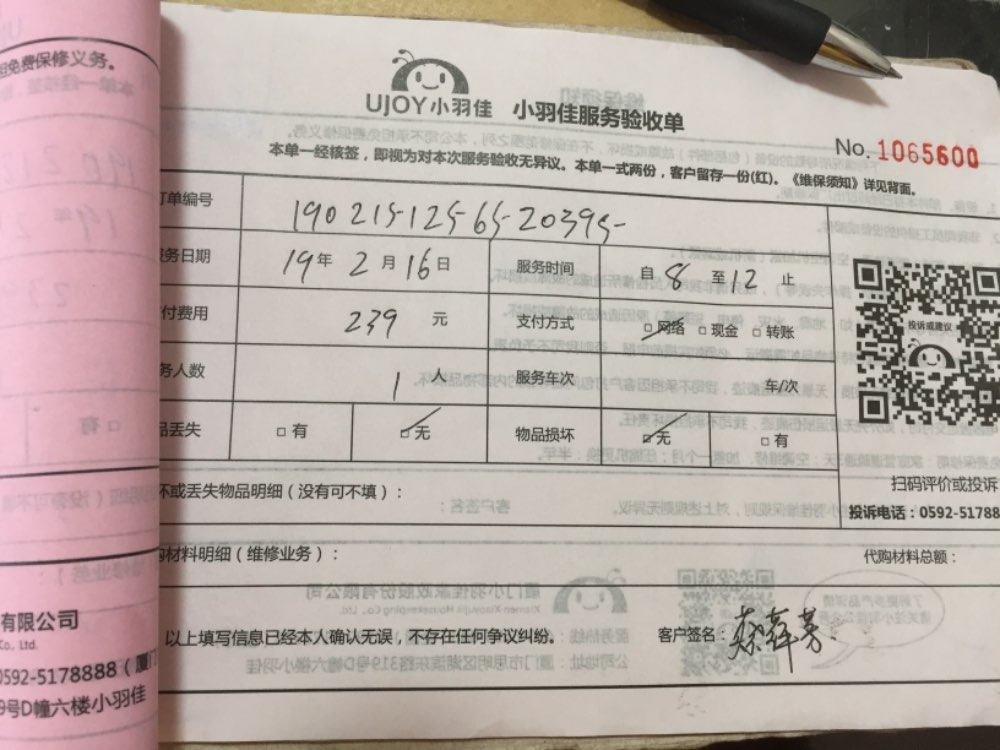 担免费保修义务。
UJOY小羽佳 小羽佳服务验收单
No. 1065600
本单一经核签，即视为对本次服务验收无异议。本单一式两份，客户留存一份(红)。《维保须知》详见背面。
订单编号 190215-125-65-20395-
务日期 19年 2月16日 服务时间 自 8 至12 止
付费用 239 元 支付方式 □网络 □现金 □转账
务人数 1 人 服务车次 车/次
品丢失 □有 □无 物品损坏 □无 □有
投诉或建议
扫码评价或投诉
坏或丢失物品明细（没有可不填）：
投诉电话：0592-51788
购材料明细（维修业务）： 代购材料总额：
以上填写信息已经本人确认无误，不存在任何争议纠纷。 客户签名：
有限公司
Co., Ltd.
0592-5178888（厦门
9号D幢六楼小羽佳